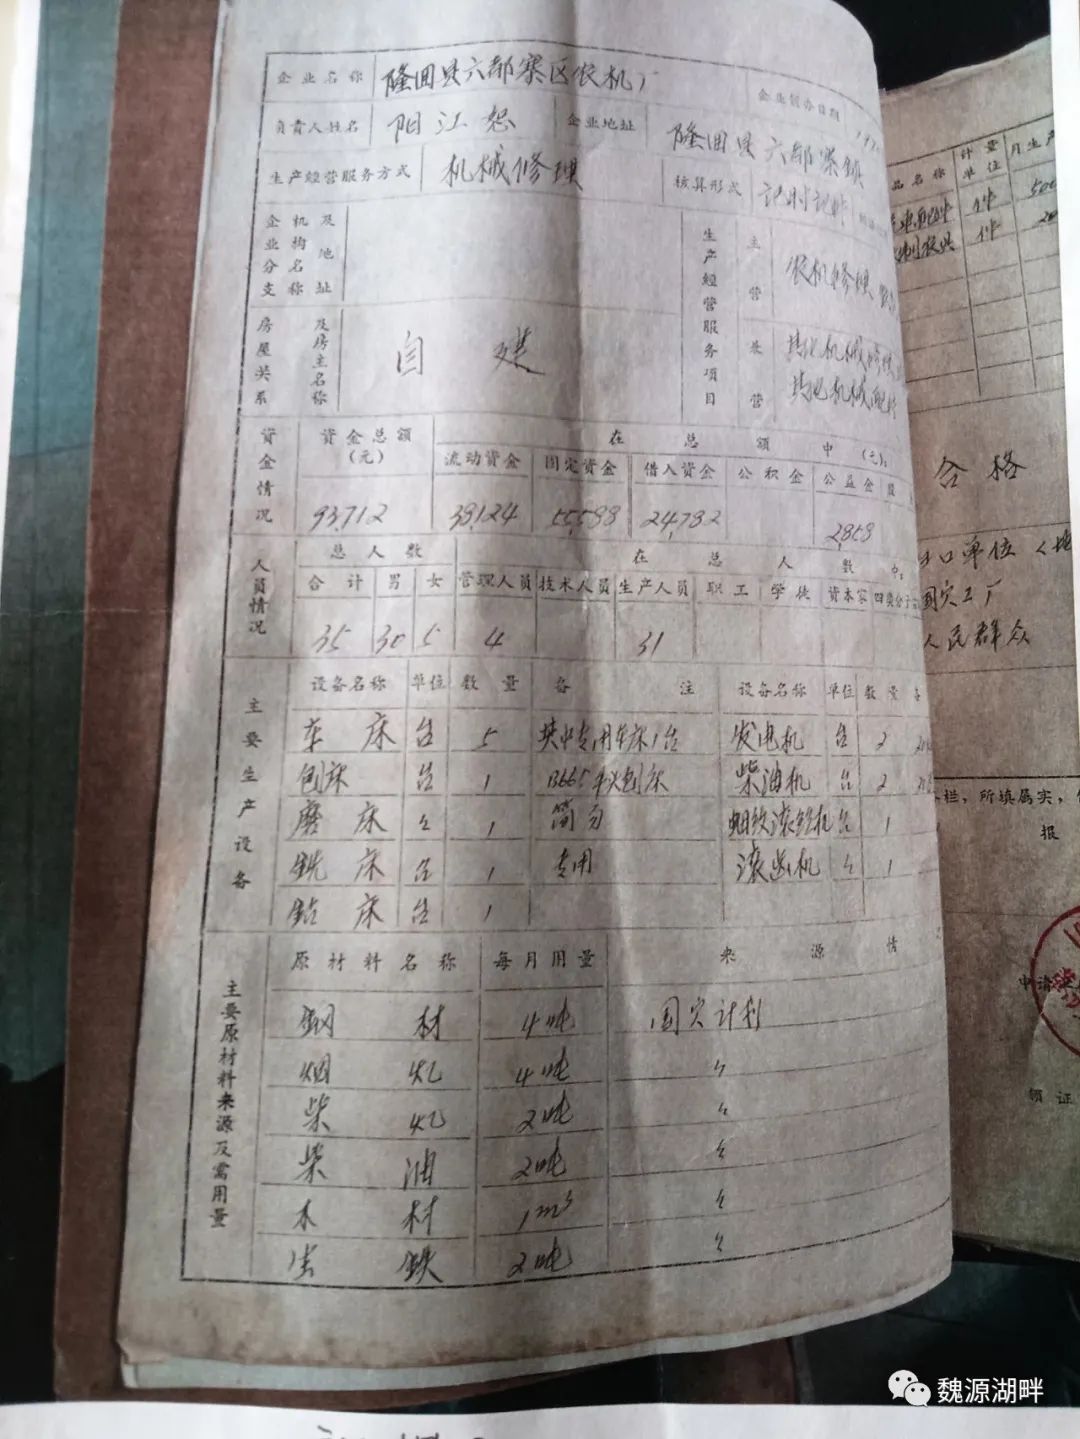 企业名称 隆回县六都寨区农机厂 企业创办日期 197
负责人姓名 阳江恕 企业地址 隆回县六都寨镇
生产经营服务方式 机械修理 核算形式 记时记件
企业分支机构名称及地址
生产经营服务项目
主营 农机修理
兼营 其他机械修理
其他机械配件
房屋关系及房主名称 自建
资金情况
资金总额(元) 在总额中(元):
流动资金 固定资金 借入资金 公积金 公益金 股
93,712 38,124 55,588 24,782 2,858
人员情况
总人数 在总人数中:
合计 男 女 管理人员 技术人员 生产人员 职工 学徒 资本家 四类分子
35 30 5 4 31
主要生产设备
设备名称 单位 数量 备注 设备名称 单位 数量 备
车床 台 5 其中专用车床1台 发电机 台 2
刨床 台 1 B665 刨床 柴油机 台 2
磨床 〃 1 简易 滚丝机 台 1
铣床 台 1 专用 滚齿机 〃 1
钻床 台 1
主要原材料来源及需用量
原材料名称 每月用量 来源情
钢材 4吨 国家计划
烟煤 4吨 〃
柴煤 2吨 〃
柴油 2吨 〃
木材 1m³ 〃
生铁 2吨 〃
品名称 计量单位 月生产
件 500
件
合格
口单位
国家工厂
人民群众
栏,所填属实,
报
申请
领证
魏源湖畔